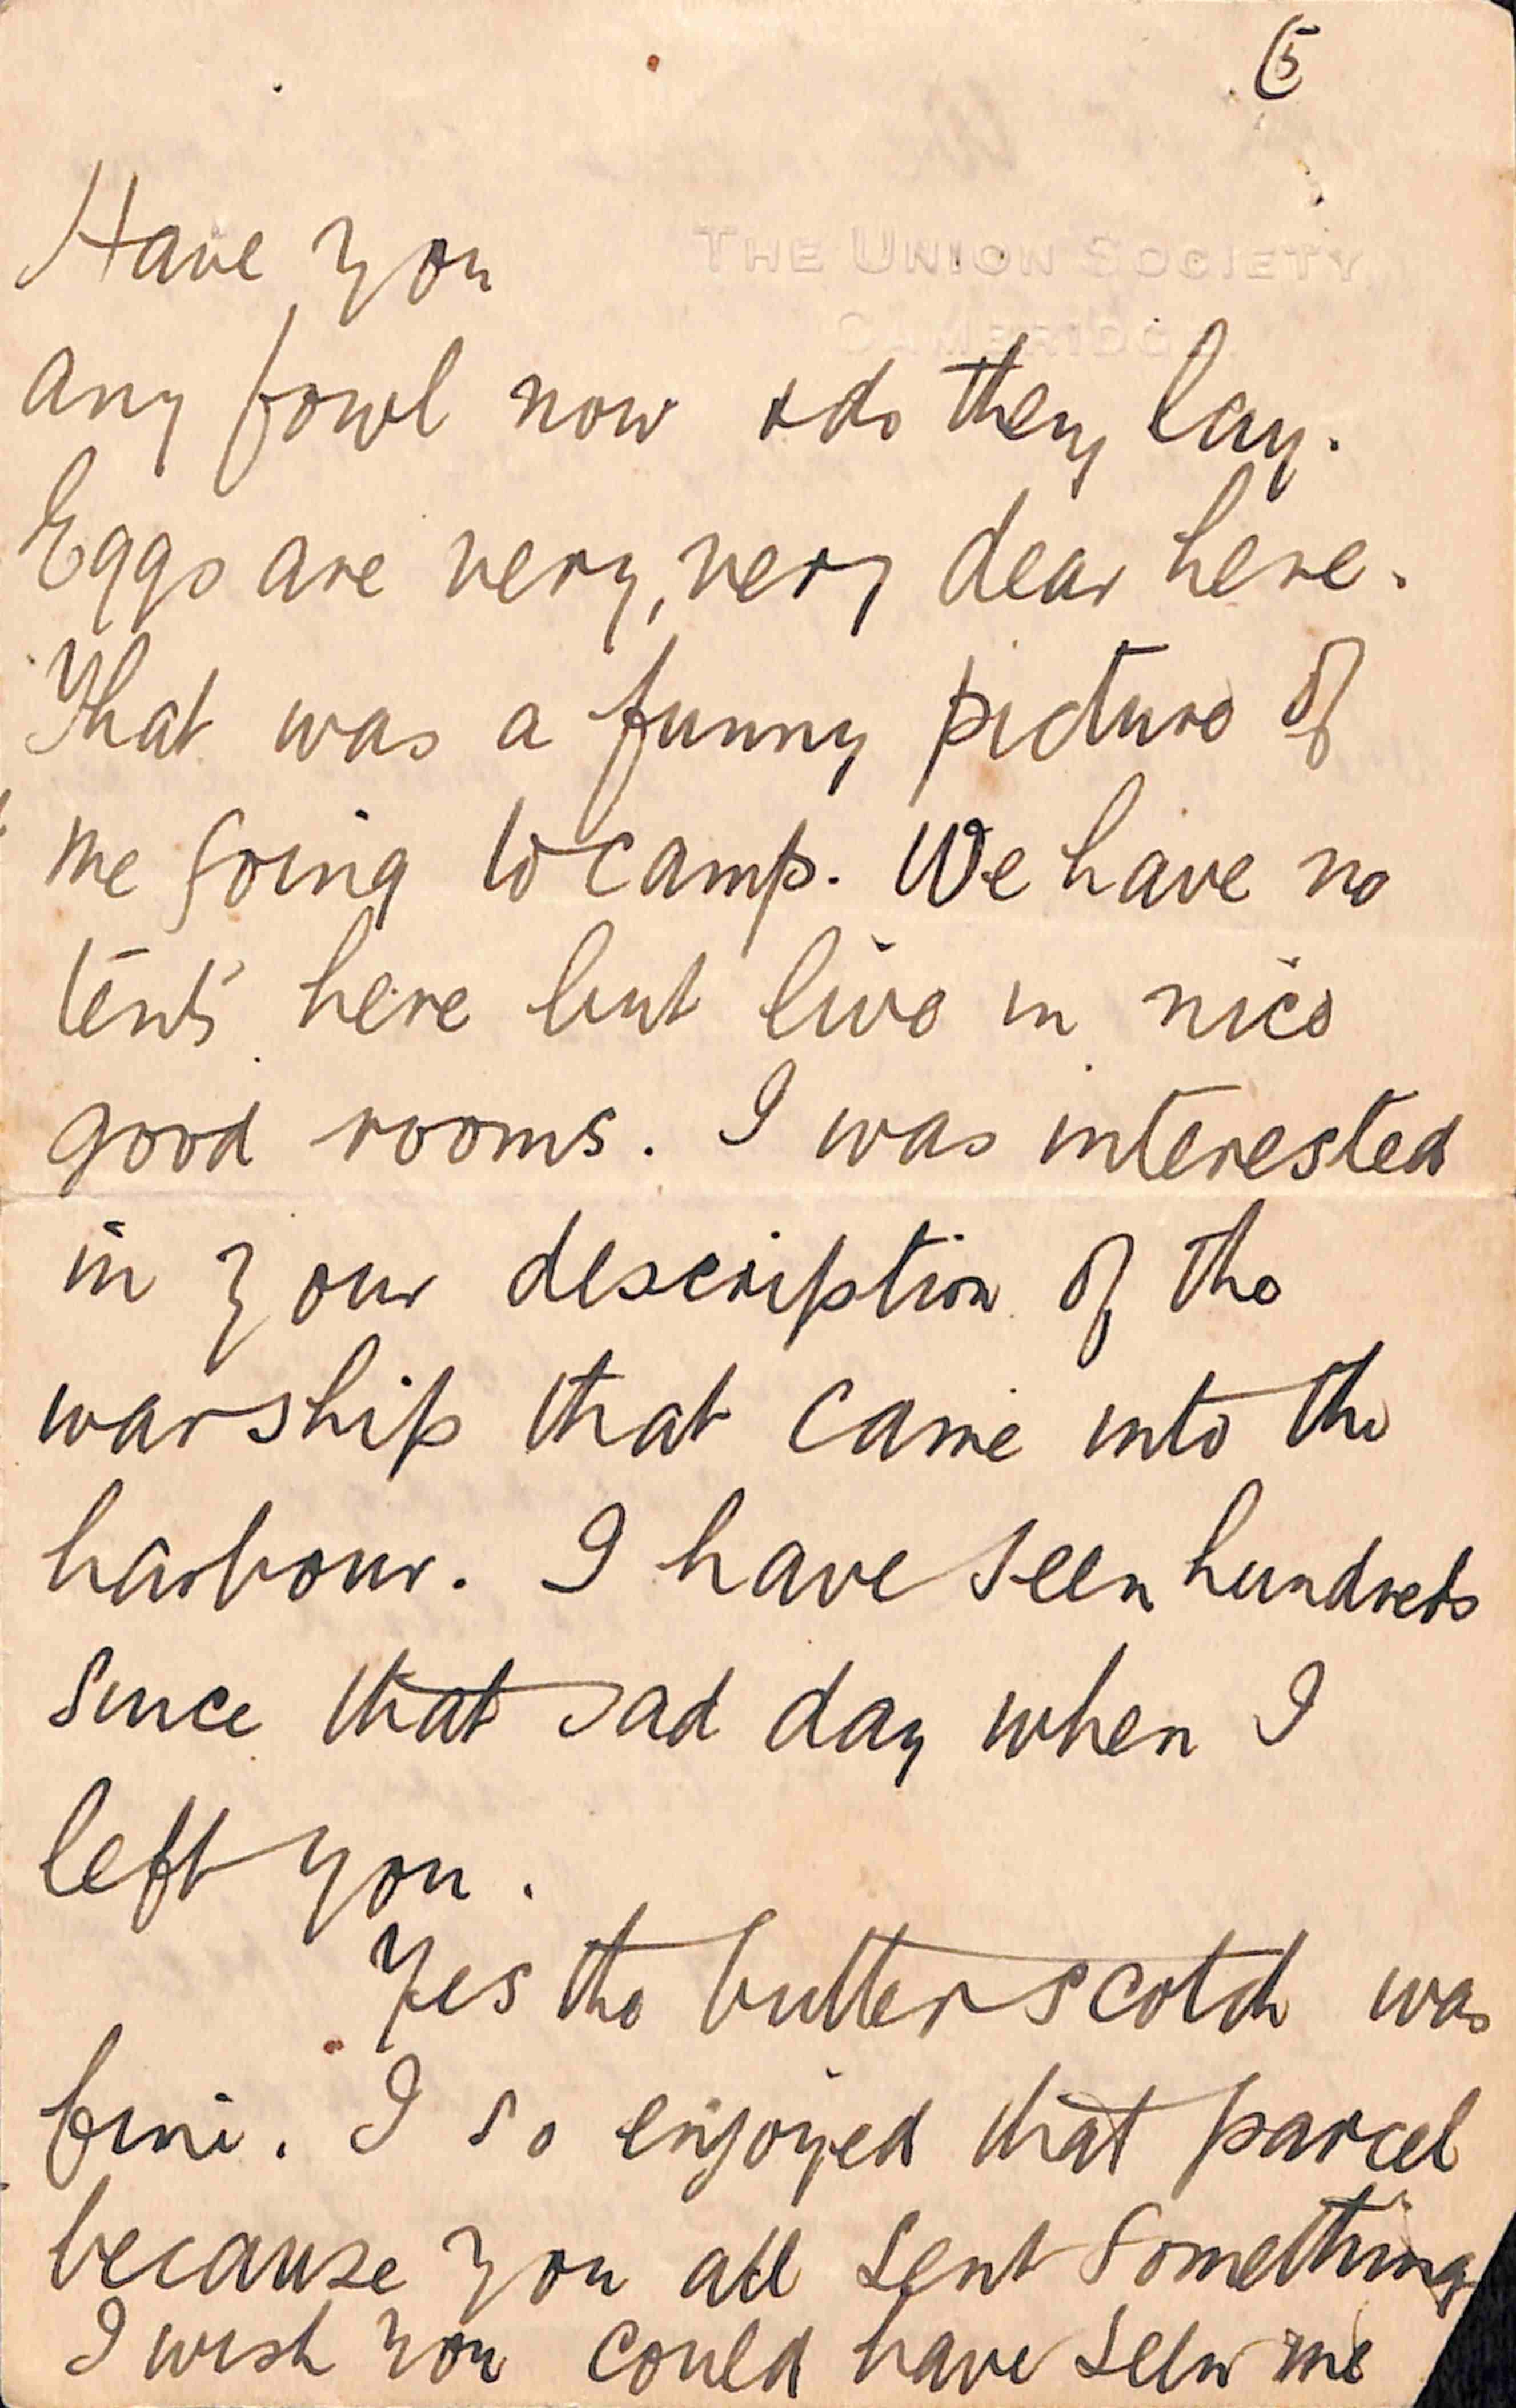 (5
THE UNION SOCIETY
CAMBRIDGE
Have you
any fowl now & do they lay.
Eggs are very, very dear here.
That was a funny picture of
me going to camp. We have no
tents here but live in nice
good rooms. I was interested
in your description of the
warship that came into the
harbour. I have seen hundreds
since that sad day when I
left you.
Yes the butter scotch was
fine. I so enjoyed that parcel
because you all sent something
I wish you could have seen me